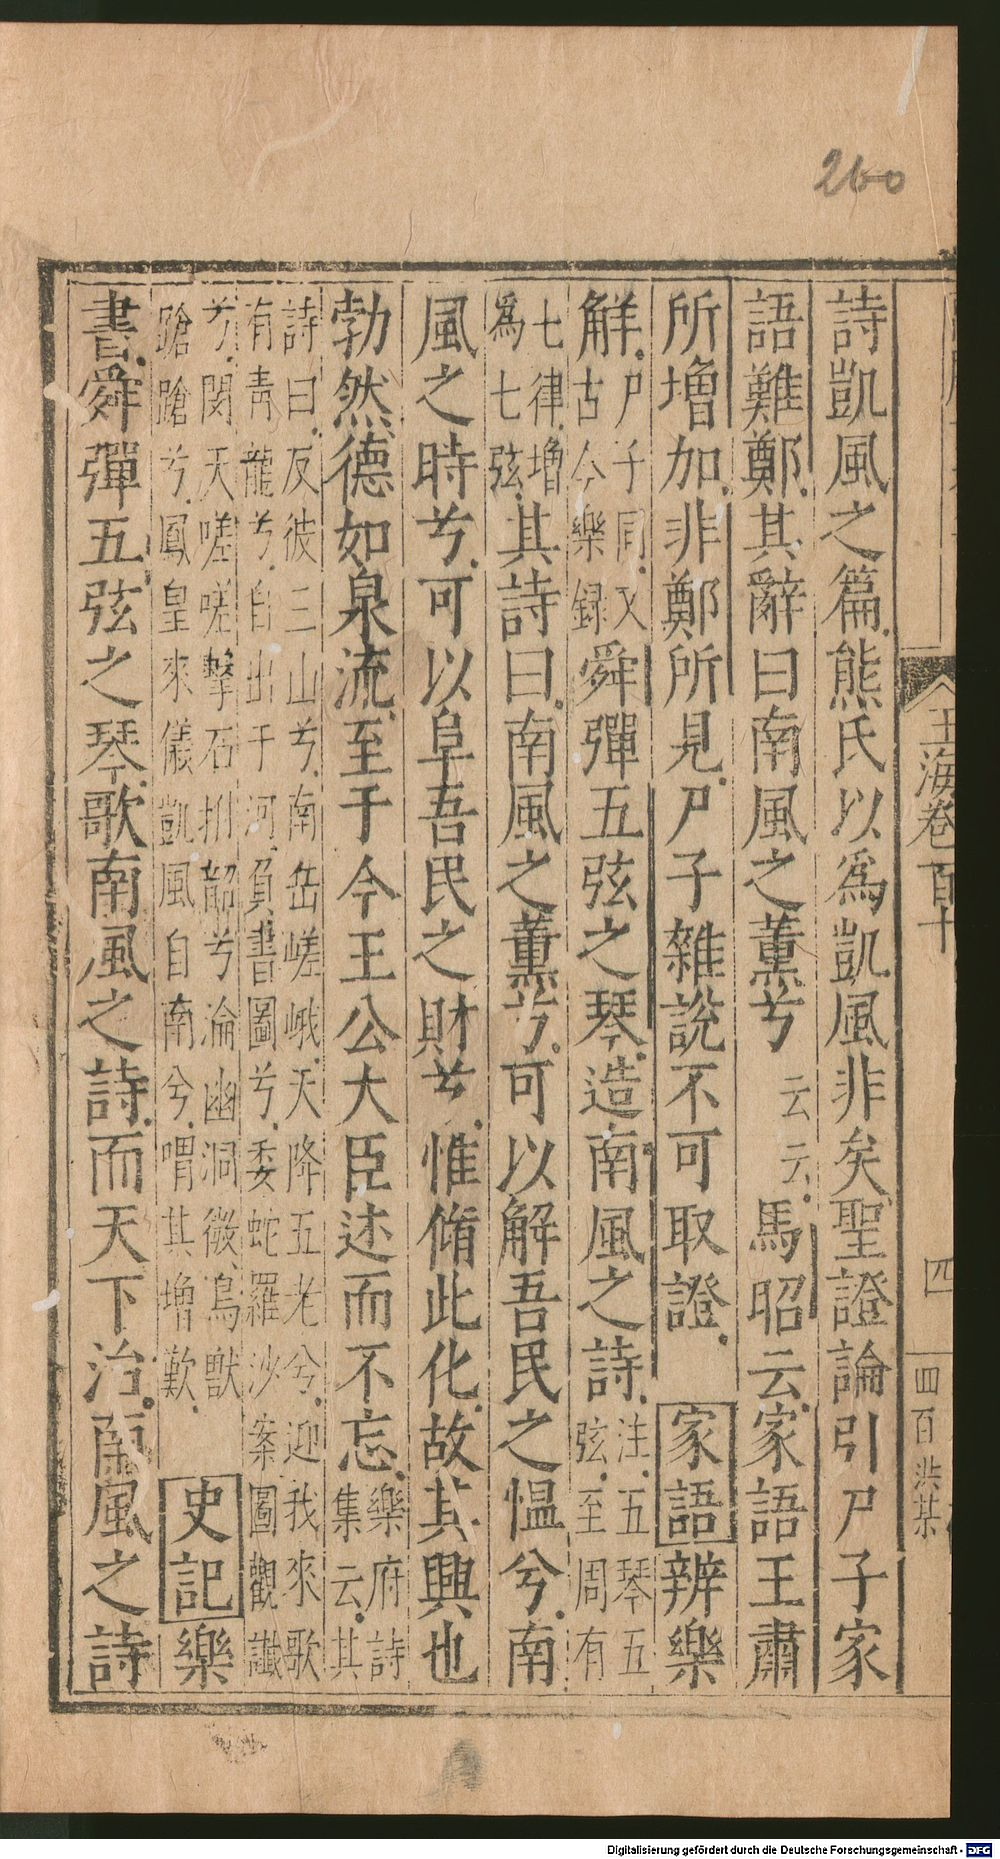 260
詩凱風之篇熊氏以為凱風非矣聖證論引尸子家
語難鄭其辭曰南風之薰兮云云馬昭云家語王肅
所增加非鄭所見尸子雜說不可取證家語辨樂
解尸子同又古今樂録舜彈五弦之琴造南風之詩注五琴五弦至周有
七律増為七弦其詩曰南風之薰兮可以解吾民之愠兮南
風之時兮可以阜吾民之財兮惟脩此化故其興也
勃然德如泉流至于今王公大臣述而不忘樂府詩集云其
詩曰反彼三山兮南岳嵯峨天降五老兮迎我來歌有青龍兮自出于河負書圖兮委蛇羅沙案圖觀讖
兮閔天嗟嗟擊石拊韶兮淪幽洞微鳥獸蹌蹌兮鳳皇來儀凱風自南兮喟其増歎史記樂
書舜彈五弦之琴歌南風之詩而天下治南風之詩
玉海卷百十
四
四百
洪某
Digitalisierung gefördert durch die Deutsche Forschungsgemeinschaft - DFG